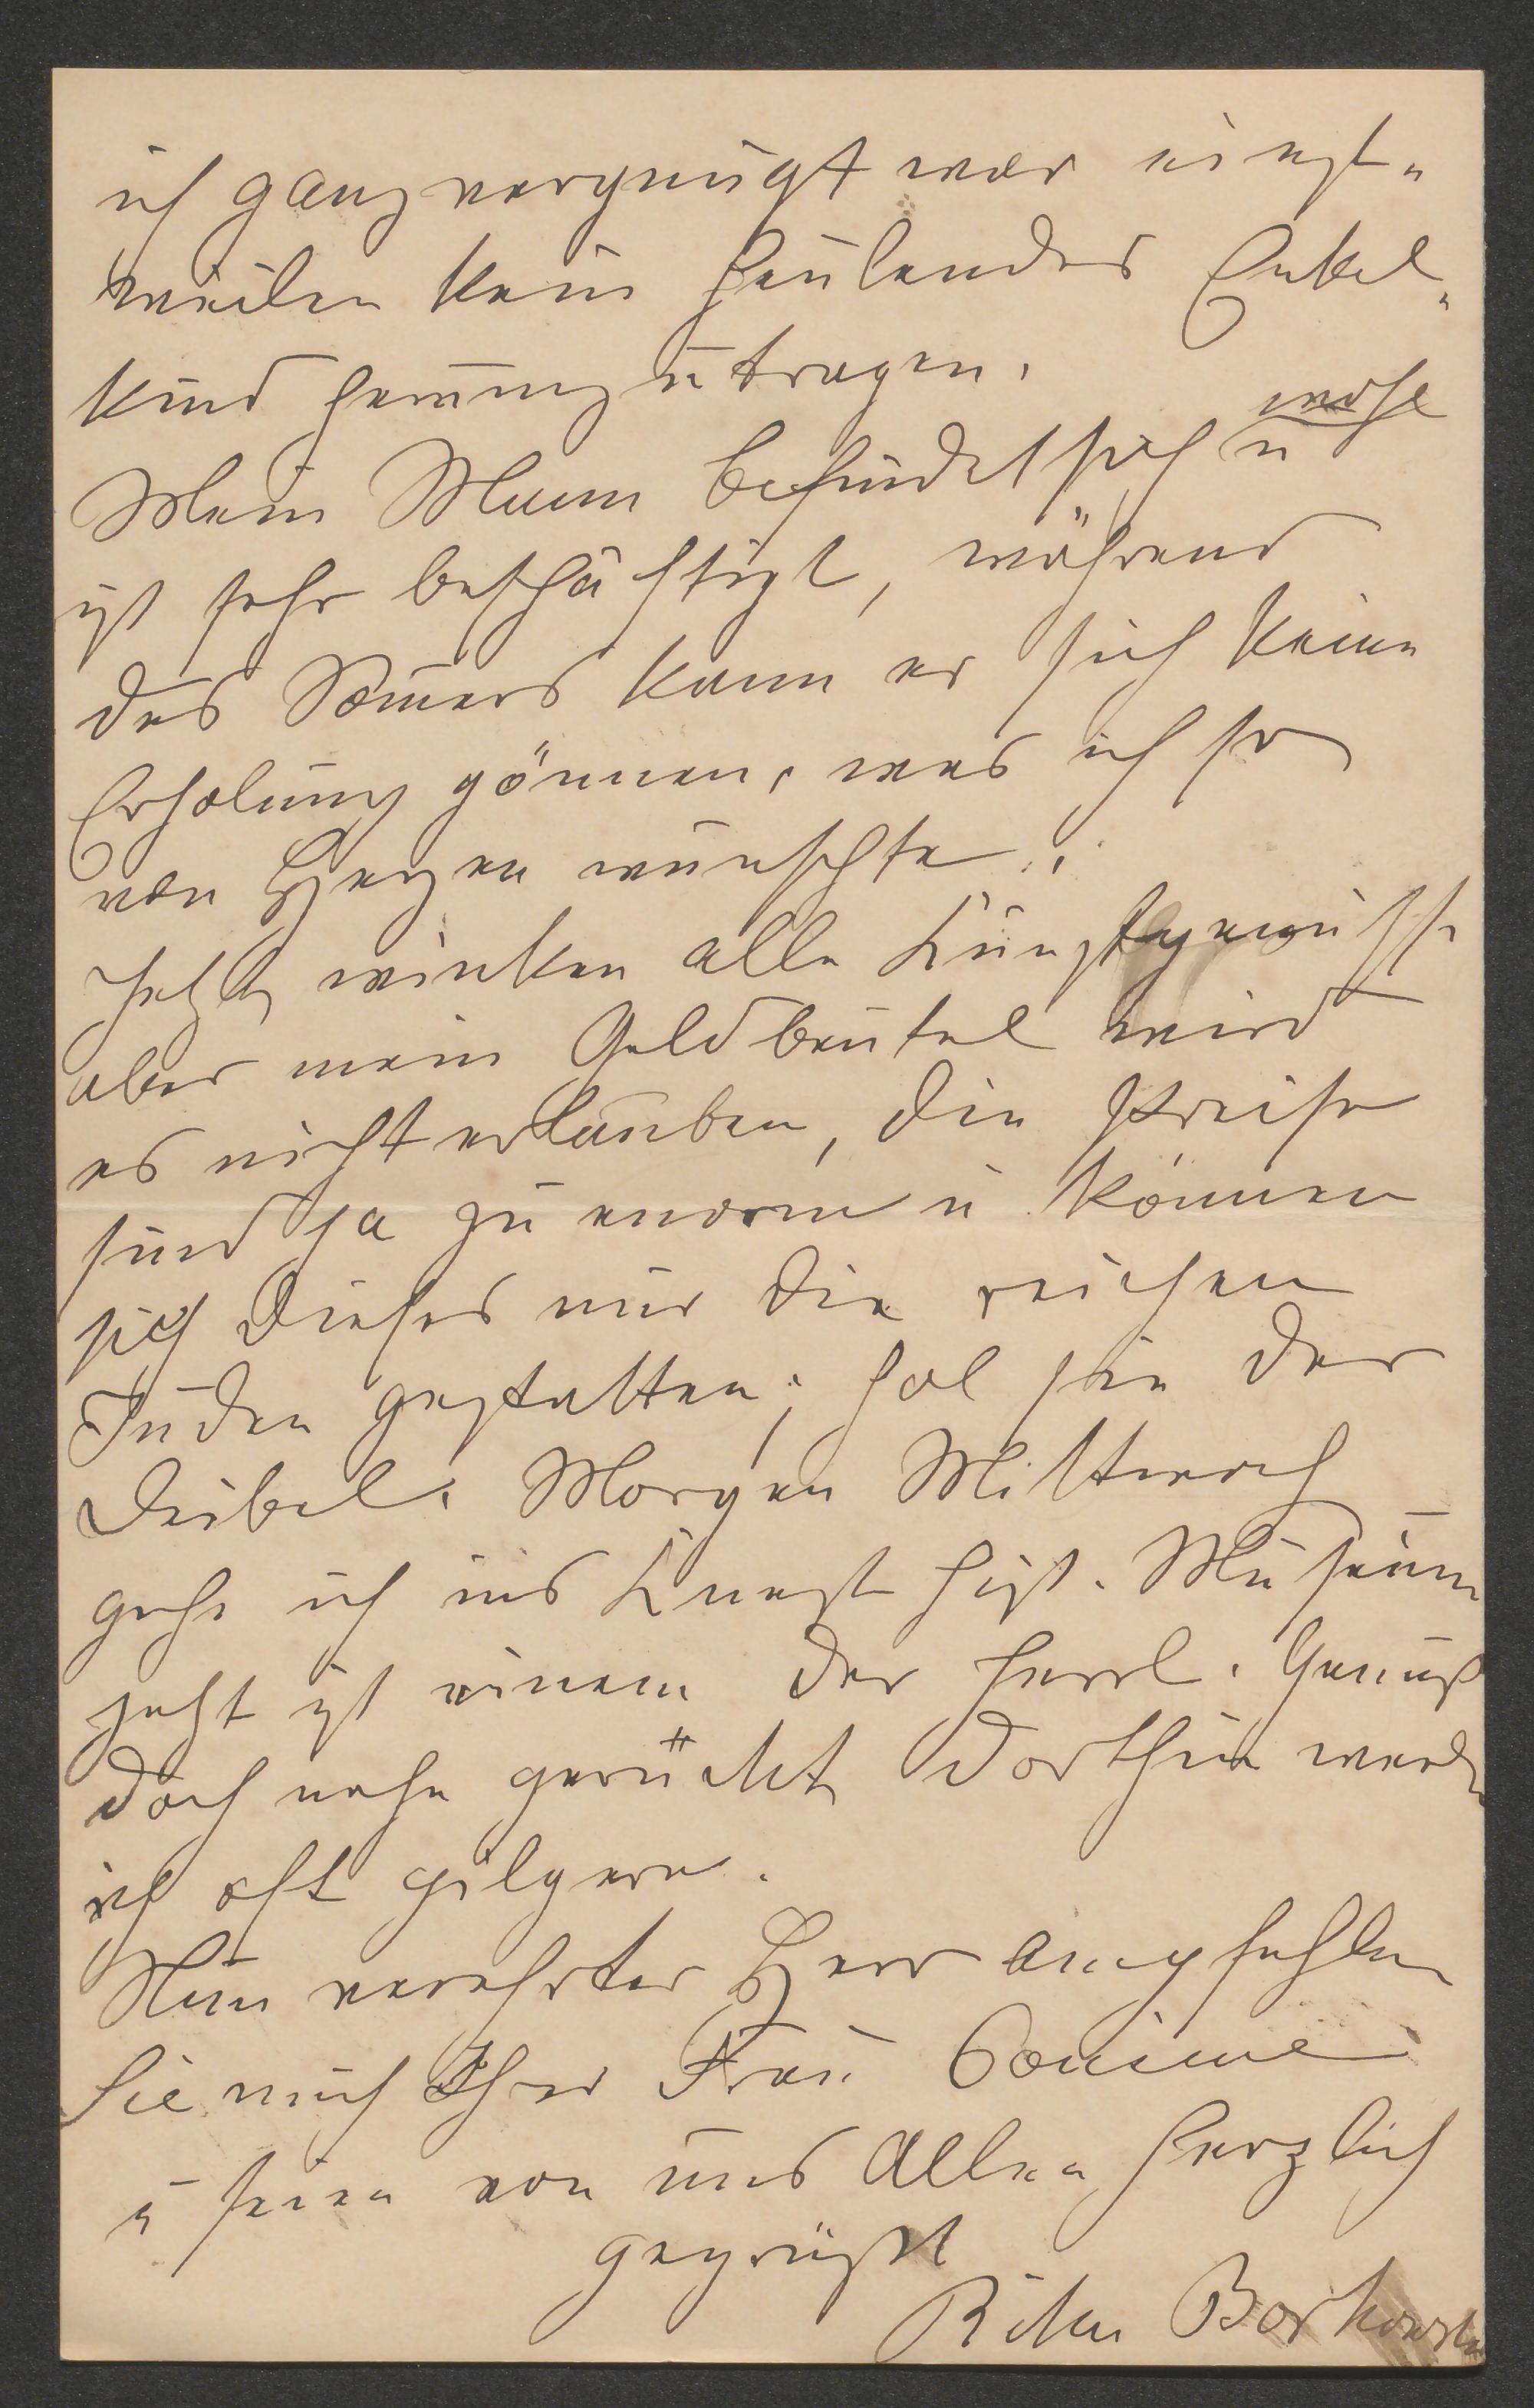 ich ganz vergnügt war einst-
weilen kein heulendes Enkel-
kind herumzutragen.
Mein Mann befindet sich wohl u
ist sehr beschäftigt, während
des Somers kann er sich keine
Erholung gönnen, was ich so
von Herzen wünschte.
Jetzt winken alle Kunstgenüsse
aber mein Geldbeutel wird
es nicht erlauben, die Preise
sind ja zu enorm u können
sich dieses nur die reichen
Juden gestatten; hol sie der
Deibel. Morgen Mittwoch
gehe ich ins Kunst hist. Museum
jetzt ist einem der herrl. Genuß
doch nahe gerückt dorthin werde
ich oft pilgern.
Nun verehrter Herr empfehlen
Sie mich Ihrer Frau
u seien von uns Allen herzlich
gegrüßt